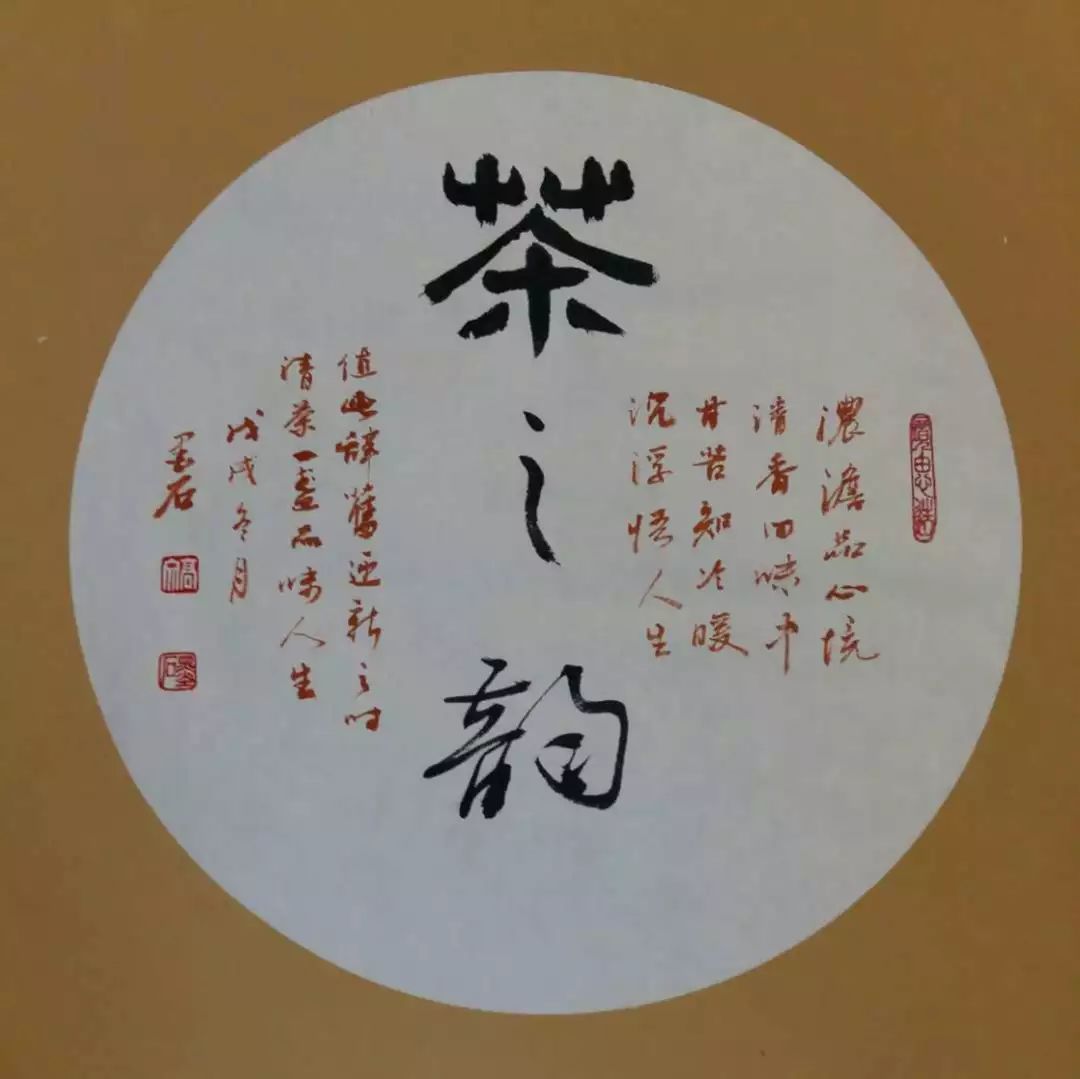 濃澹品心境
清香回味中
甘苦知冷暖
沉浮悟人生
茶之韵
值此辞舊迎新之时
清茶一品味人生
戊戌冬月
墨石